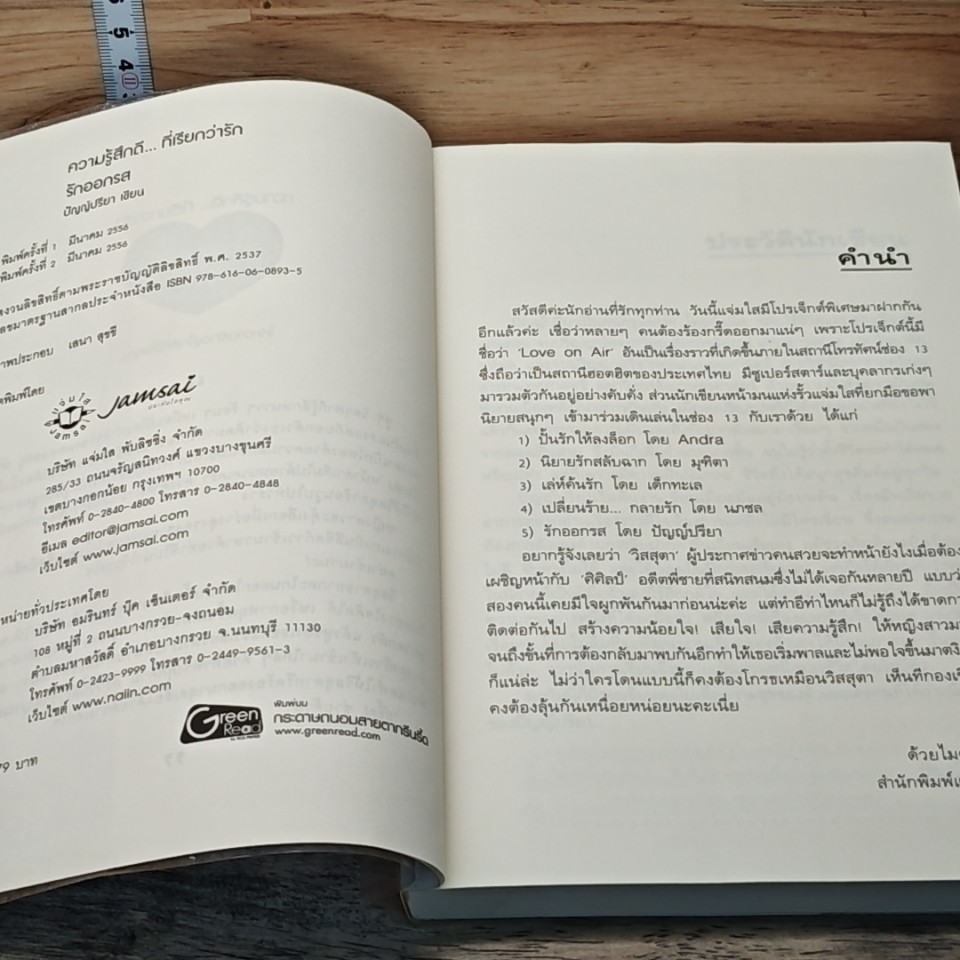 5
4
11
ความรู้สึกดี... ที่เรียกว่ารัก
รักออกรส
ปัญญ์ปรียา เขียน
พิมพ์ครั้งที่ 1 มีนาคม 2556
พิมพ์ครั้งที่ 2 มีนาคม 2556
สงวนลิขสิทธิ์ตามพระราชบัญญัติลิขสิทธิ์ พ.ศ. 2537
เลขมาตรฐานสากลประจำหนังสือ ISBN 978-616-06-0893-5
ภาพประกอบ เสนา สุขชี
jamsai
บริษัท แจ่มใส พับลิชชิ่ง จำกัด
285/33 ถนนจรัญสนิทวงศ์ แขวงบางขุนศรี
เขตบางกอกน้อย กรุงเทพฯ 10700
โทรศัพท์ 0-2840-4800 โทรสาร 0-2840-4848
อีเมล editor@jamsai.com
เว็บไซต์ www.jamsai.com
หน่ายทั่วประเทศโดย
บริษัท อมรินทร์ บุ๊ค เซ็นเตอร์ จำกัด
108 หมู่ที่ 2 ถนนบางกรวย-จงถนอม
ตำบลมหาสวัสดิ์ อำเภอบางกรวย จ.นนทบุรี 11130
โทรศัพท์ 0-2423-9999 โทรสาร 0-2449-9561-3
เว็บไซต์ www.naiin.com
Green Read
พิมพ์บน
กระดาษถนอมสายตากรีนรี้ด
www.greenread.com
79 บาท
คำนำ
สวัสดีค่ะนักอ่านที่รักทุกท่าน วันนี้แจ่มใสมีโปรเจ็กต์พิเศษมาฝากกัน
อีกแล้วค่ะ เชื่อว่าหลายๆ คนต้องร้องกรี๊ดออกมาแน่ๆ เพราะโปรเจ็กต์นี้มี
ชื่อว่า 'Love on Air' อันเป็นเรื่องราวที่เกิดขึ้นภายในสถานีโทรทัศน์ช่อง 13
ซึ่งถือว่าเป็นสถานีฮอตฮิตของประเทศไทย มีซูเปอร์สตาร์และบุคลากรเก่งๆ
มารวมตัวกันอยู่อย่างคับคั่ง ส่วนนักเขียนหน้ามนแห่งรั้วแจ่มใสที่ยกมือขอพา
นิยายสนุกๆ เข้ามาร่วมเดินเล่นในช่อง 13 กับเราด้วย ได้แก่
1) ปั้นรักให้ลงล็อก โดย Andra
2) นิยายรักสลับฉาก โดย มุฑิตา
3) เล่ห์ค้นรัก โดย เด็กทะเล
4) เปลี่ยนร้าย... กลายรัก โดย นภชล
5) รักออกรส โดย ปัญญ์ปรียา
อยากรู้จังเลยว่า 'วิสสุตา' ผู้ประกาศข่าวคนสวยจะทำหน้ายังไงเมื่อต้อง
เผชิญหน้ากับ 'ศิศิลป์' อดีตพี่ชายที่สนิทสนมซึ่งไม่ได้เจอกันหลายปี แบบว่า
สองคนนี้เคยมีใจผูกพันกันมาก่อนน่ะค่ะ แต่ทำอีท่าไหนก็ไม่รู้ถึงได้ขาดกา
ติดต่อกันไป สร้างความน้อยใจ! เสียใจ! เสียความรู้สึก! ให้หญิงสาวมา
จนถึงขั้นที่การต้องกลับมาพบกันอีกทำให้เธอเริ่มพาลและไม่พอใจขึ้นมาตงิ
ก็แน่ล่ะ ไม่ว่าใครโดนแบบนี้ก็คงต้องโกรธเหมือนวิสสุตา เห็นทีกองเ
คงต้องลุ้นกันเหนื่อยหน่อยนะคะเนี่ย
ด้วยไม
สำนักพิมพ์